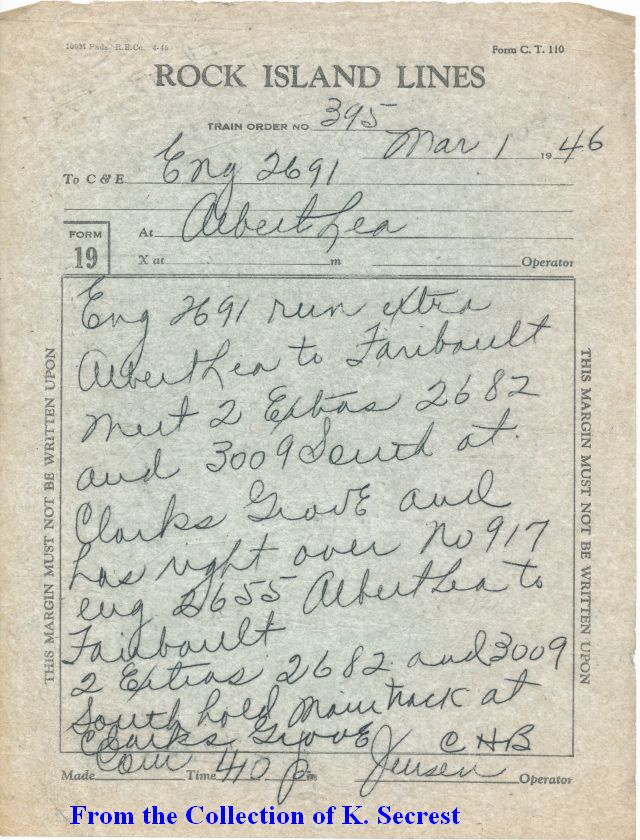 100M Pads R.B.Co. 4-45
Form C. T. 110
ROCK ISLAND LINES
TRAIN ORDER NO 395
Mar 1 1946
To C & E Eng 2691
FORM
19
At Albert Lea
X at m Operator
Eng 2691 run extra
Albert Lea to Faribault
meet 2 Extras 2682
and 3009 South at
Clarks Grove and
has right over No 917
eng 2655 Albert Lea to
Faribault
2 Extras 2682 and 3009
South hold Main track at
Clarks Grove CHB
Made Com Time 410 pm Jensen Operator
THIS MARGIN MUST NOT BE WRITTEN UPON
THIS MARGIN MUST NOT BE WRITTEN UPON
From the Collection of K. Secrest